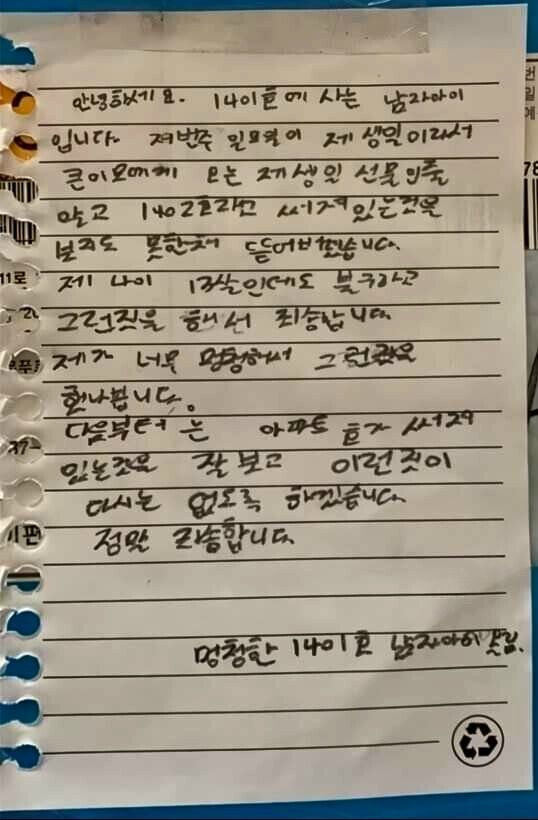 안녕하세요. 1401호에 사는 남자아이
입니다. 저번주 일요일이 제 생일이라서
큰이모에게 오는 제 생일 선물인줄
알고 1402호라고 써져있는것을
보지도 못한채 뜯어버렸습니다.
제 나이 13살인데도 불구하고
그런짓을 해서 죄송합니다.
제가 너무 멍청해서 그런
다음부터는 아파트 호가 써져
있는것을 잘보고 이런짓이
다시는 없도록 하겠습니다.
정말 죄송합니다.
멍청한 1401호 남자아이 올림.
11로
37-